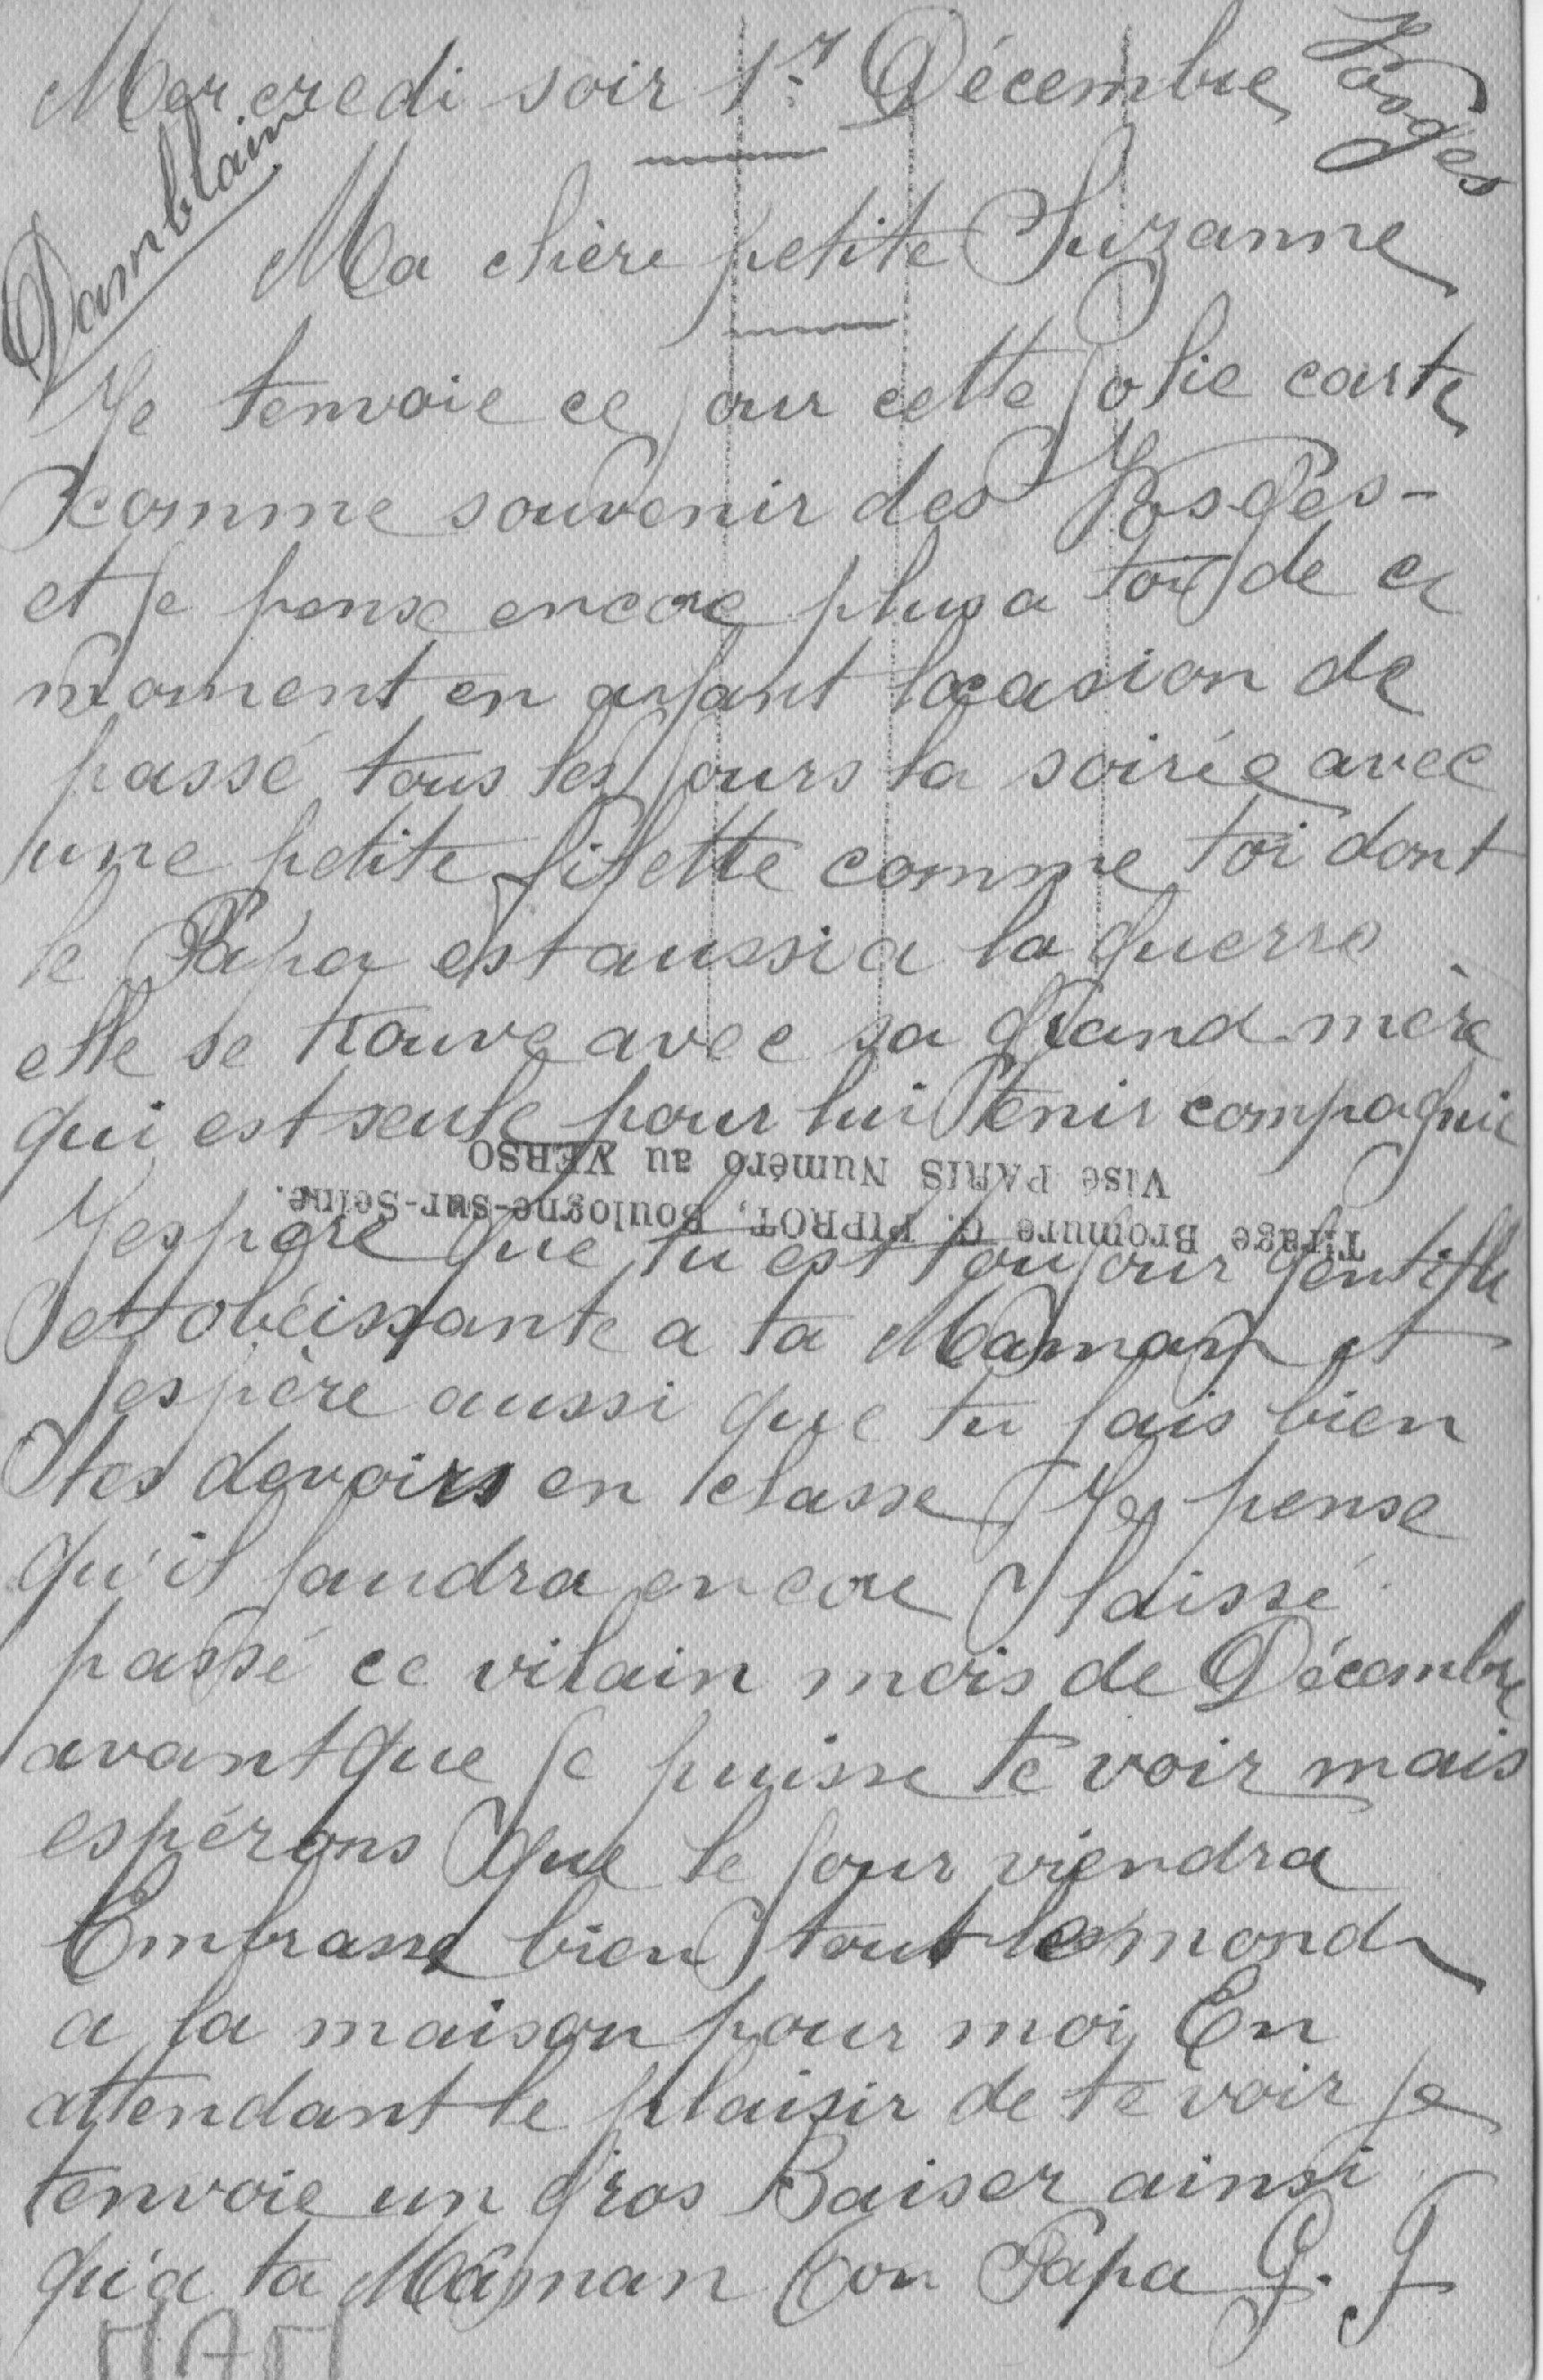 Mercredi soir 1er Décembre
Vosges
Damblain
Ma chère petite Suzanne
Je tenvoie ce jour cette jolie carte
comme souvenir des Vosges-
et je pense encore plus a toi de ce
moment en ayant locasion de
passé tous les jours la soirée avec
une petite fifette comme toi dont
le Papa est aussi a la guerre
elle se trouve avec sa Grand-mère
qui est seule pour lui tenir compagnie
Jespère que tu est toujour gentille
et obéissante a ta Maman et
jespère aussi que tu fais bien
tes devoirs en classe Je pense
qu'il faudra encore laissé
passé ce vilain mois de Décembre
avant que je puisse te voir mais
espérons que le jour viendra
Embrasse bien tout le monde
a la maison pour moi En
attendant le plaisir de te voir je
tenvoie un gros Baiser ainsi
qu'a ta Maman Ton Papa G. J
Tirage Bromure G. PIPROT, Boulogne-sur-Seine.
Visé PARIS Numéro au VERSO